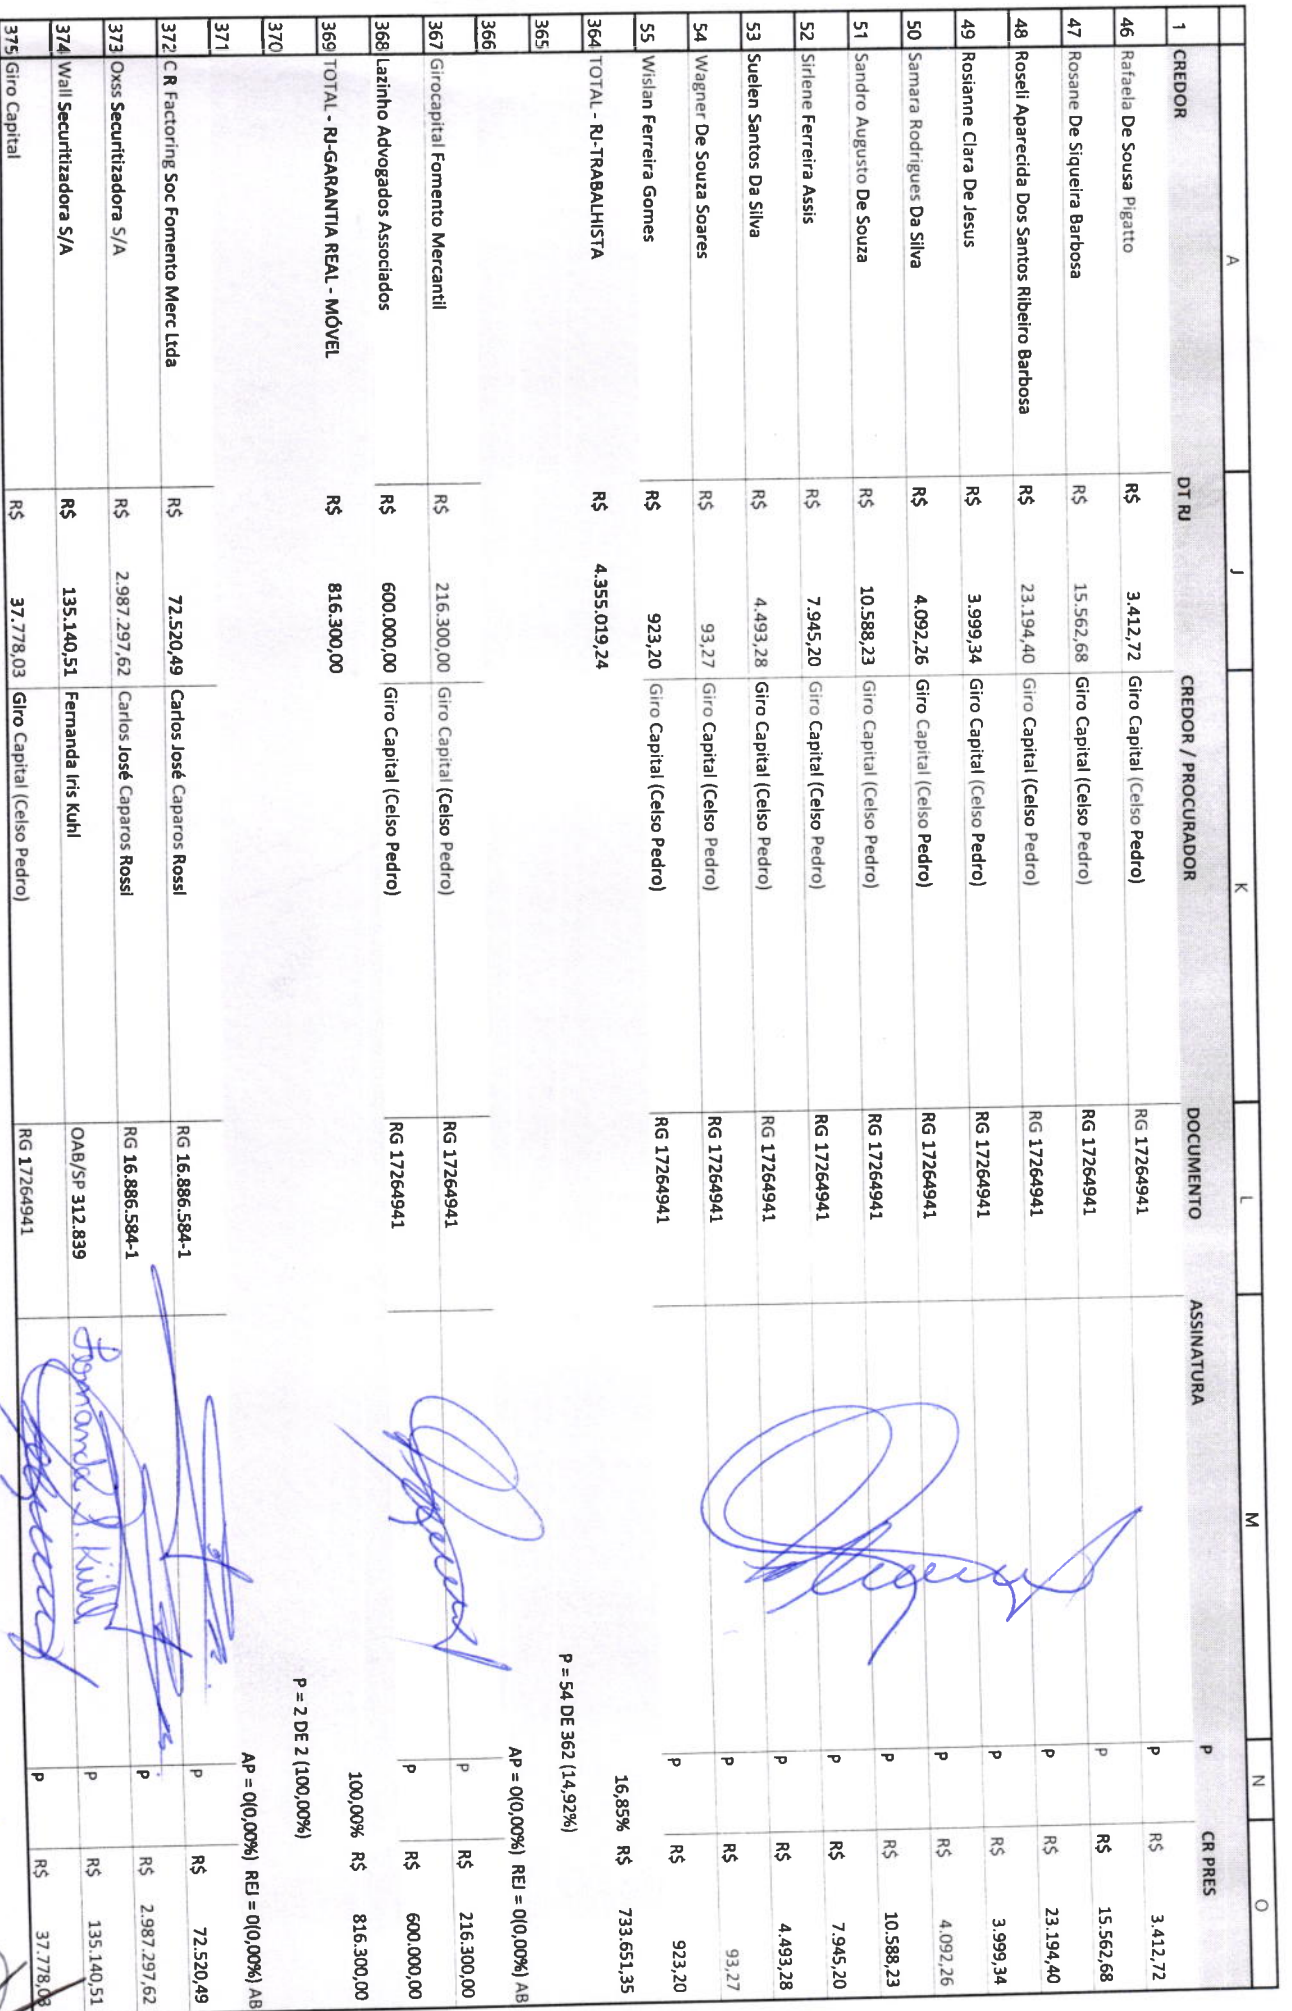 A J K L M N O
1 CREDOR DT RJ CREDOR / PROCURADOR DOCUMENTO ASSINATURA P CR PRES
46 Rafaela De Sousa Pigatto R$ 3.412,72 Giro Capital (Celso Pedro) RG 17264941 P R$ 3.412,72
47 Rosane De Siqueira Barbosa R$ 15.562,68 Giro Capital (Celso Pedro) RG 17264941 P R$ 15.562,68
48 Roseli Aparecida Dos Santos Ribeiro Barbosa R$ 23.194,40 Giro Capital (Celso Pedro) RG 17264941 P R$ 23.194,40
49 Rosianne Clara De Jesus R$ 3.999,34 Giro Capital (Celso Pedro) RG 17264941 P R$ 3.999,34
50 Samara Rodrigues Da Silva R$ 4.092,26 Giro Capital (Celso Pedro) RG 17264941 P R$ 4.092,26
51 Sandro Augusto De Souza R$ 10.588,23 Giro Capital (Celso Pedro) RG 17264941 P R$ 10.588,23
52 Sirlene Ferreira Assis R$ 7.945,20 Giro Capital (Celso Pedro) RG 17264941 P R$ 7.945,20
53 Suelen Santos Da Silva R$ 4.493,28 Giro Capital (Celso Pedro) RG 17264941 P R$ 4.493,28
54 Wagner De Souza Soares R$ 93,27 Giro Capital (Celso Pedro) RG 17264941 P R$ 93,27
55 Wislan Ferreira Gomes R$ 923,20 Giro Capital (Celso Pedro) RG 17264941 P R$ 923,20
364 TOTAL - RJ-TRABALHISTA R$ 4.355.019,24 16,85% R$ 733.651,35
365 P = 54 DE 362 (14,92%)
366 AP = 0(0,00%) REJ = 0(0,00%) AB
367 Girocapital Fomento Mercantil R$ 216.300,00 Giro Capital (Celso Pedro) RG 17264941 P R$ 216.300,00
368 Lazinho Advogados Associados R$ 600.000,00 Giro Capital (Celso Pedro) RG 17264941 P R$ 600.000,00
369 TOTAL - RJ-GARANTIA REAL - MÓVEL R$ 816.300,00 100,00% R$ 816.300,00
370 P = 2 DE 2 (100,00%)
371 AP = 0(0,00%) REJ = 0(0,00%) AB
372 C R Factoring Soc Fomento Merc Ltda R$ 72.520,49 Carlos José Caparos Rossi RG 16.886.584-1 P R$ 72.520,49
373 Oxss Securitizadora S/A R$ 2.987.297,62 Carlos José Caparos Rossi RG 16.886.584-1 P R$ 2.987.297,62
374 Wall Securitizadora S/A R$ 135.140,51 Fernanda Iris Kuhl OAB/SP 312.839 Fernanda I. Kühl P R$ 135.140,51
375 Giro Capital R$ 37.778,03 Giro Capital (Celso Pedro) RG 17264941 P R$ 37.778,03